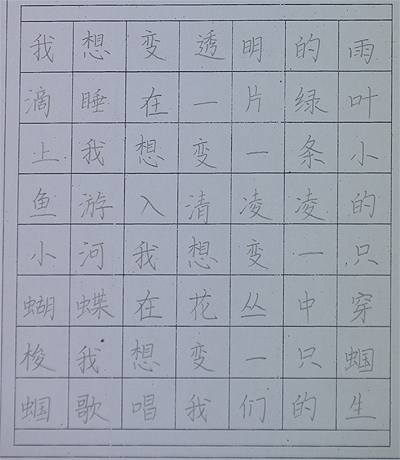 我想变透明的雨
滴睡在一片绿叶
上我想变一条小
鱼游入清凌凌的
小河我想变一只
蝴蝶在花丛中穿
梭我想变一只蝈
蝈歌唱我们的生